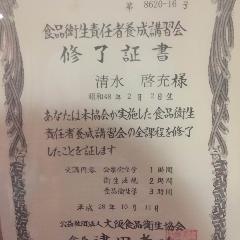 第 8620-16 号
食品衛生責任者養成講習会
修了証書
清水 啓充様
昭和48年2月2日生
あなたは本協会が実施した食品衛生
責任者養成講習会の全課程を修了
したことを証します
受講内容 公衆衛生学 1時間
衛生法規 2時間
食品衛生学 3時間
平成28年10月
公益社団法人 大阪食品衛生協会
会長